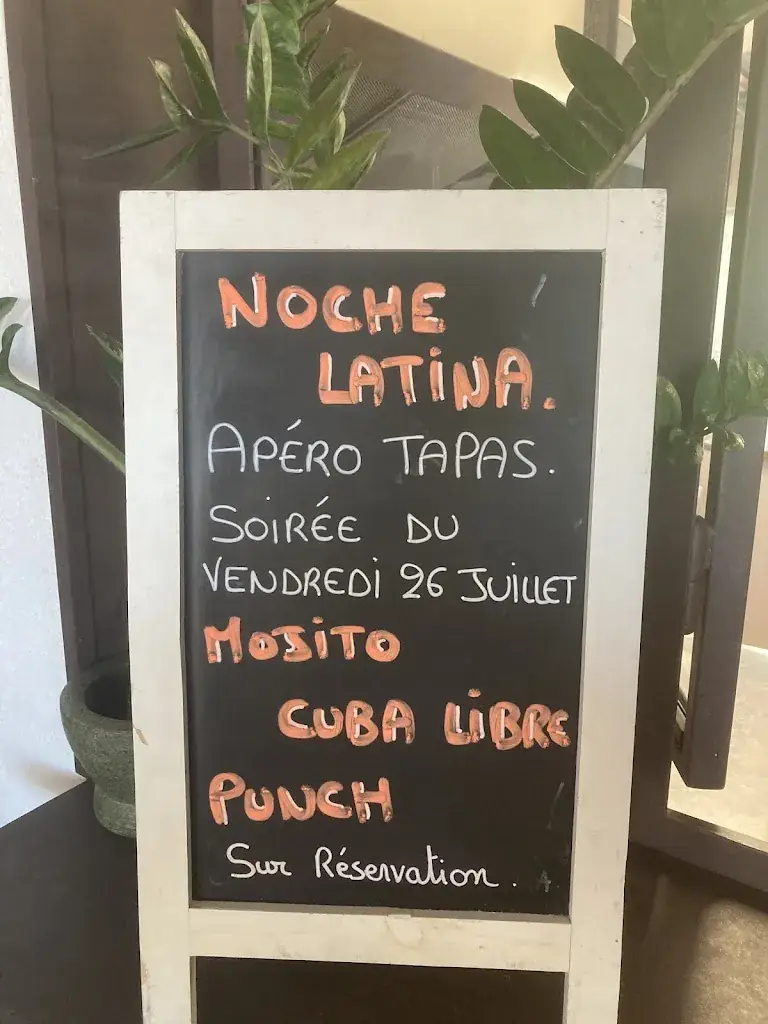 NOCHE
LATINA.
APÉRO TAPAS.
SOIRÉE DU
VENDREDI 26 JUILLET
MOJITO
CUBA LIBRE
PUNCH
Sur Réservation.